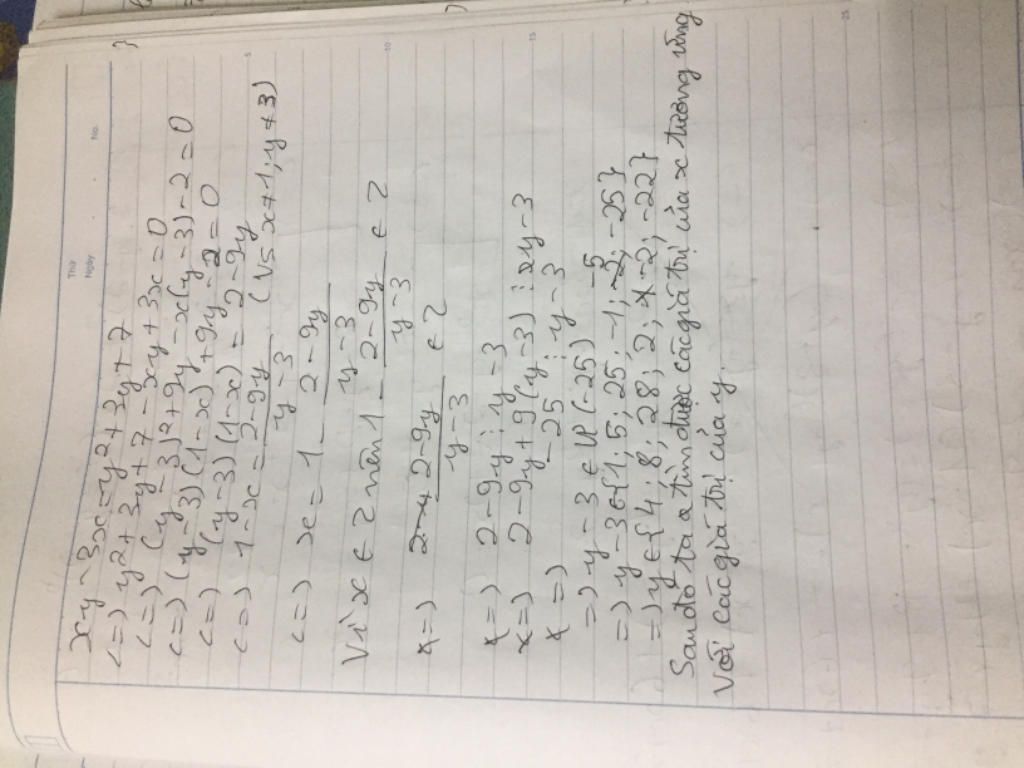 Thứ
Ngày
No.
xy - 3x = y² + 3y + 7
<=> y² + 3y + 7 - xy + 3x = 0
<=> (y - 3)² + 9y - x(y - 3) - 2 = 0
<=> (y - 3)(1 - x) + 9y - 2 = 0
<=> (y - 3)(1 - x) = 2 - 9y
<=> 1 - x = 2 - 9y / y - 3 (Vs x ≠ 1, y ≠ 3)
<=> x = 1 - 2 - 9y / y - 3
Vì x ∈ Z nên 1 - 2 - 9y / y - 3 ∈ Z
=> 2 - 9y / y - 3 ∈ Z
=> 2 - 9y ⋮ y - 3
=> 2 - 9y + 9(y - 3) ⋮ y - 3
=> -25 ⋮ y - 3
=> y - 3 ∈ Ư(-25)
=> y - 3 ∈ {1; 5; 25; -1; -5; -25}
=> y ∈ {4; 8; 28; 2; -2; -22}
Sau đó ta tìm được các giá trị của x tương ứng
với các giá trị của y.
5
10
15
25